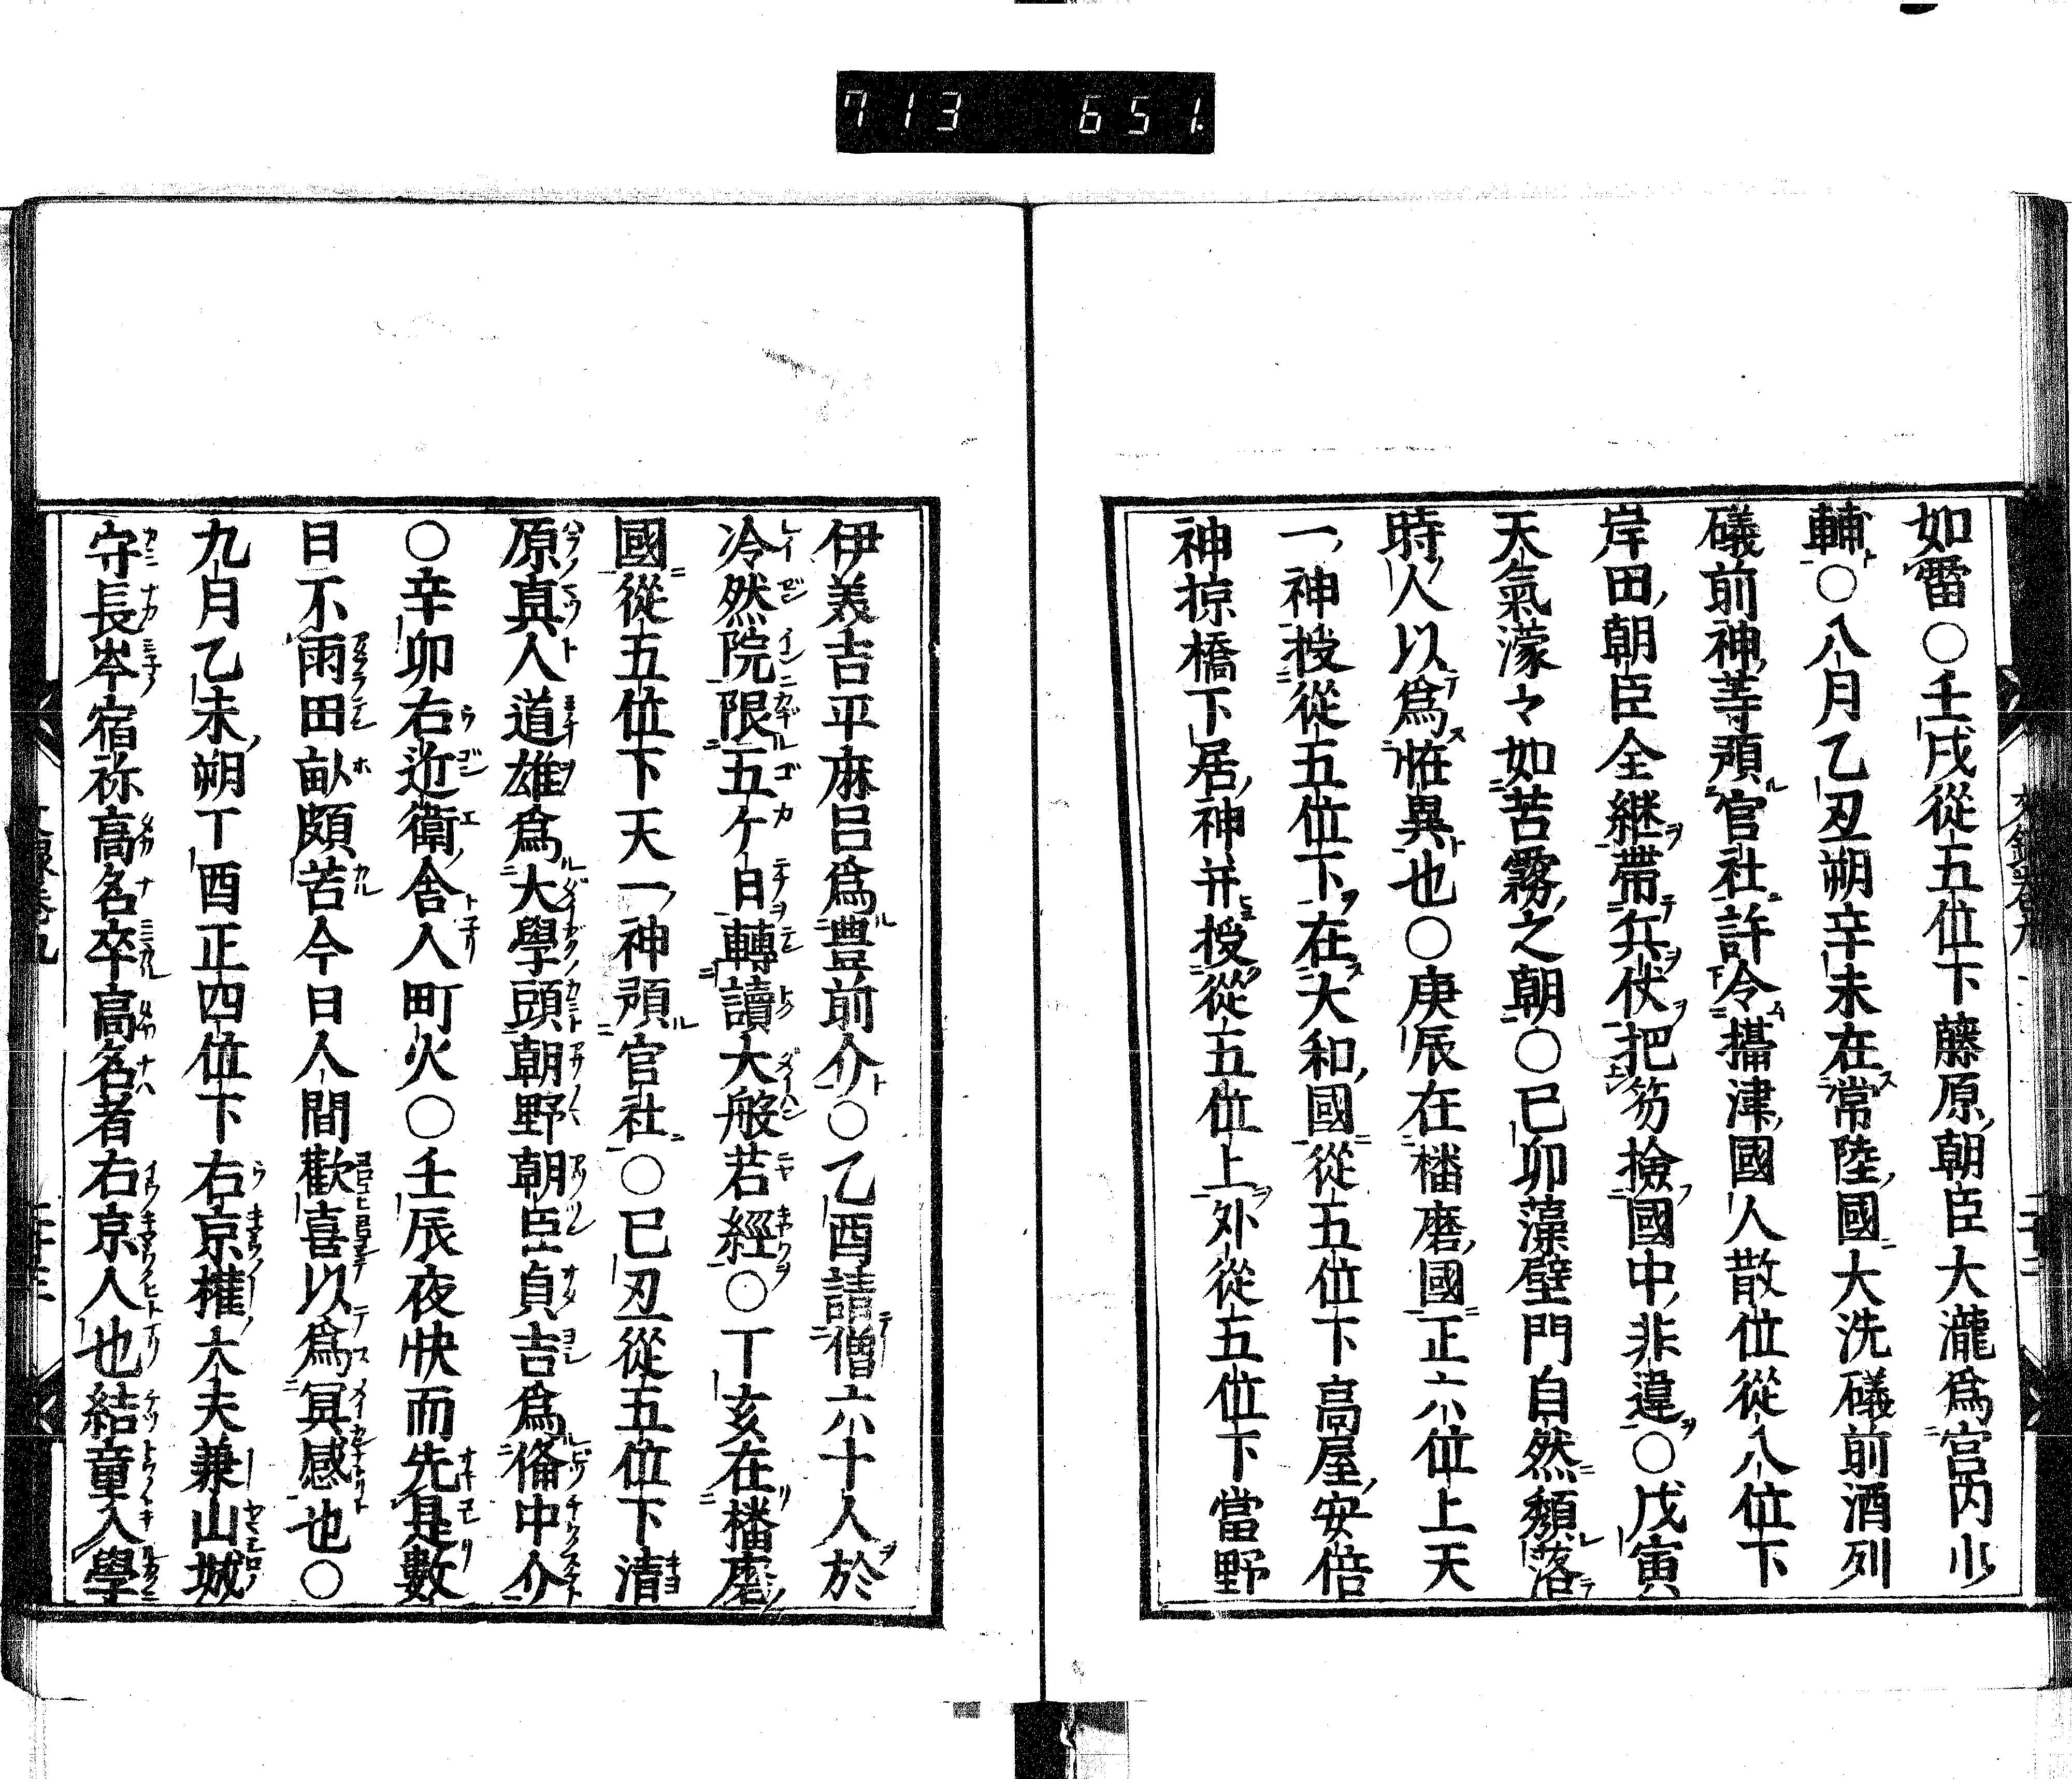 713 651.
如雷○壬戌從五位下藤原朝臣大瀧爲宮内少
輔○八月乙丑朔辛未在常陸國大洗礒前酒列
礒前神等預官社許令攝津國人散位從八位下
岸田朝臣全継帶兵仗把笏撿國中非違○戊寅
天氣濛々如苦霧之朝○已卯藻壁門自然頽落
時人以爲恠異也○庚辰在播磨國正六位上天
一神授從五位下在大和國從五位下高屋安倍
神掠橋下居神并授從五位上外從五位下當野
伊美吉平麻呂爲豊前介○乙酉請僧六十人於
冷然院限五ケ日轉讀大般若經○丁亥在播磨
國從五位下天一神預官社○已丑從五位下清
原真人道雄爲大學頭朝野朝臣貞吉爲俻中介
○辛卯右近衛舎人町火○壬辰夜快而先是數
日不雨田畝頗苦今日人間歡喜以爲冥感也○
九月乙未朔丁酉正四位下右京權大夫兼山城
守長岑宿祢高名卒高名者右京人也結童入學